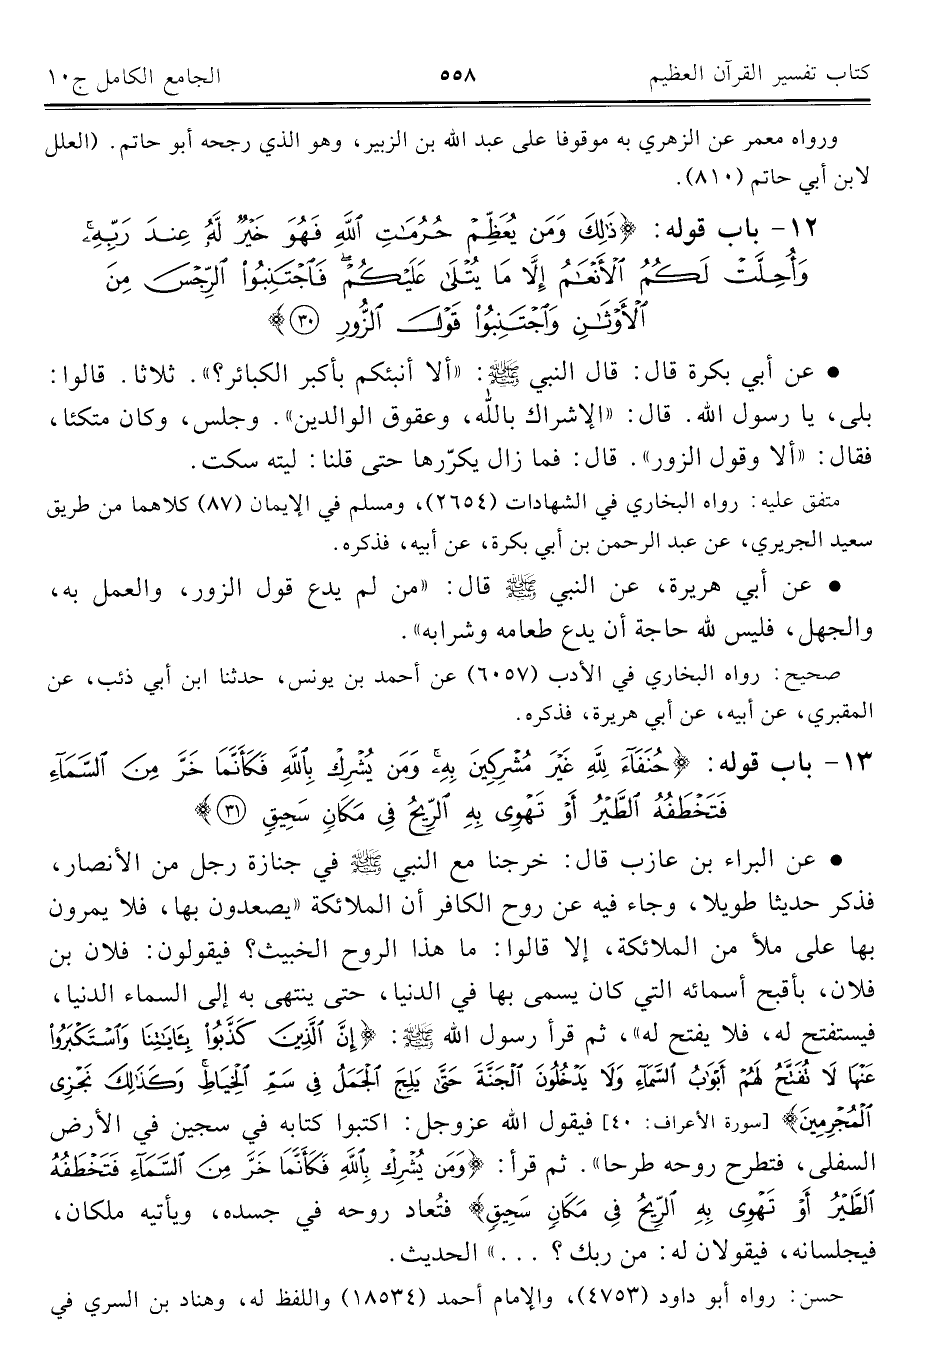 كتاب تفسير القرآن العظيم ٥٥٨ الجامع الكامل ج١٠
ورواه معمر عن الزهري به موقوفا على عبد الله بن الزبير، وهو الذي رجحه أبو حاتم. (العلل
لابن أبي حاتم (٨١٠).
١٢- باب قوله: ﴿ذَٰلِكَ وَمَن يُعَظِّمْ حُرُمَٰتِ ٱللَّهِ فَهُوَ خَيْرٌ لَّهُۥ عِندَ رَبِّهِۦ
وَأُحِلَّتْ لَكُمُ ٱلْأَنْعَٰمُ إِلَّا مَا يُتْلَىٰ عَلَيْكُمْ ۖ فَٱجْتَنِبُوا۟ ٱلرِّجْسَ مِنَ
ٱلْأَوْثَٰنِ وَٱجْتَنِبُوا۟ قَوْلَ ٱلزُّورِ ٣٠﴾
● عن أبي بكرة قال: قال النبي ﷺ: «ألا أنبئكم بأكبر الكبائر؟». ثلاثا. قالوا:
بلى، يا رسول الله. قال: «الإشراك بالله، وعقوق الوالدين». وجلس، وكان متكئا،
فقال: «ألا وقول الزور». قال: فما زال يكرّرها حتى قلنا: ليته سكت.
متفق عليه: رواه البخاري في الشهادات (٢٦٥٤)، ومسلم في الإيمان (٨٧) كلاهما من طريق
سعيد الجريري، عن عبد الرحمن بن أبي بكرة، عن أبيه، فذكره.
● عن أبي هريرة، عن النبي ﷺ قال: «من لم يدع قول الزور، والعمل به،
والجهل، فليس لله حاجة أن يدع طعامه وشرابه».
صحيح: رواه البخاري في الأدب (٦٠٥٧) عن أحمد بن يونس، حدثنا ابن أبي ذئب، عن
المقبري، عن أبيه، عن أبي هريرة، فذكره.
١٣- باب قوله: ﴿حُنَفَآءَ لِلَّهِ غَيْرَ مُشْرِكِينَ بِهِۦ ۚ وَمَن يُشْرِكْ بِٱللَّهِ فَكَأَنَّمَا خَرَّ مِنَ ٱلسَّمَآءِ
فَتَخْطَفُهُ ٱلطَّيْرُ أَوْ تَهْوِى بِهِ ٱلرِّيحُ فِى مَكَانٍ سَحِيقٍ ٣١﴾
● عن البراء بن عازب قال: خرجنا مع النبي ﷺ في جنازة رجل من الأنصار،
فذكر حديثا طويلا، وجاء فيه عن روح الكافر أن الملائكة «يصعدون بها، فلا يمرون
بها على ملأ من الملائكة، إلا قالوا: ما هذا الروح الخبيث؟ فيقولون: فلان بن
فلان، بأقبح أسمائه التي كان يسمى بها في الدنيا، حتى ينتهى به إلى السماء الدنيا،
فيستفتح له، فلا يفتح له»، ثم قرأ رسول الله ﷺ: ﴿إِنَّ ٱلَّذِينَ كَذَّبُوا۟ بِـَٔايَٰتِنَا وَٱسْتَكْبَرُوا۟
عَنْهَا لَا تُفَتَّحُ لَهُمْ أَبْوَٰبُ ٱلسَّمَآءِ وَلَا يَدْخُلُونَ ٱلْجَنَّةَ حَتَّىٰ يَلِجَ ٱلْجَمَلُ فِى سَمِّ ٱلْخِيَاطِ ۚ وَكَذَٰلِكَ نَجْزِى
ٱلْمُجْرِمِينَ﴾ [سورة الأعراف: ٤٠] فيقول الله عزوجل: اكتبوا كتابه في سجين في الأرض
السفلى، فتطرح روحه طرحا». ثم قرأ: ﴿وَمَن يُشْرِكْ بِٱللَّهِ فَكَأَنَّمَا خَرَّ مِنَ ٱلسَّمَآءِ فَتَخْطَفُهُ
ٱلطَّيْرُ أَوْ تَهْوِى بِهِ ٱلرِّيحُ فِى مَكَانٍ سَحِيقٍ﴾ فتُعاد روحه في جسده، ويأتيه ملكان،
فيجلسانه، فيقولان له: من ربك؟ ...» الحديث.
حسن: رواه أبو داود (٤٧٥٣)، والإمام أحمد (١٨٥٣٤) واللفظ له، وهناد بن السري في